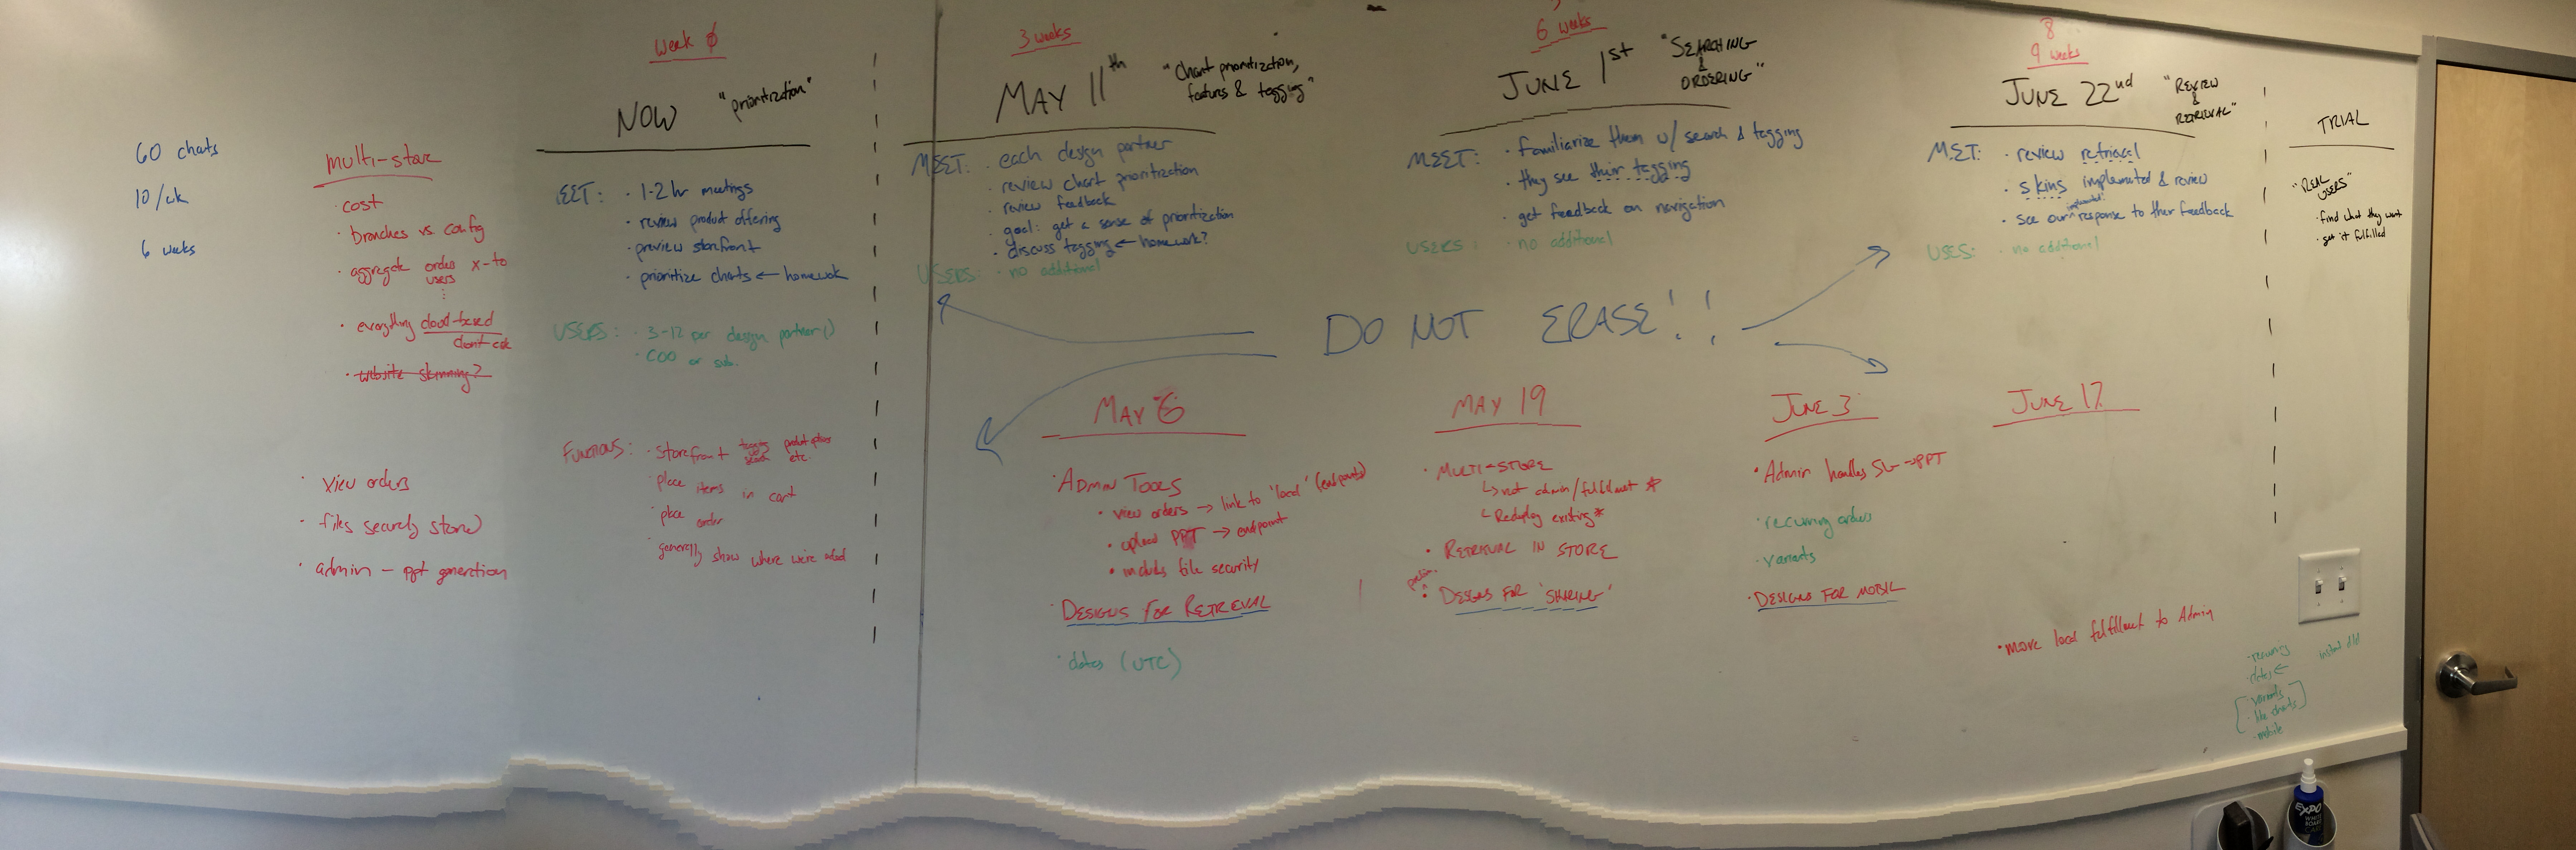 60 charts
10/wk
6 weeks
multi-store
· cost
· branches vs config
· aggregate orders x-to
users
· everything cloud-based
· website skinning?
· view orders
· files securely stored
· admin – ppt generation
Week 0
NOW "prioritization"
EET: · 1-2 hr meetings
· review product offering
· preview storefront
· prioritize charts ← homework
USERS: · 3-12 per design partner()
· COO or sub.
FUNCTIONS: · Storefront tagging search product options etc.
· place items in cart
· place order
· generally show where we're
3 weeks
MAY 11th "Chart prioritization,
features & tagging"
MEET: · each design partner
· review chart prioritization
· review feedback
· goal: get a sense of prioritization
· discuss tagging ← homework?
USERS: · no additional
6 weeks
JUNE 1st "SEARCHING
&
ORDERING"
MEET: · familiarize them w/ search & tagging
· they see their tagging
· get feedback on navigation
USERS: · no additional
8
9 weeks
JUNE 22nd "REVIEW
&
RETRIEVAL"
MEET: · review retrieval
· skins implemented & review
· see our implemented response to their feedback
USERS: · no additional
TRIAL
"REAL
USERS"
· find what they want
· get it fulfilled
DO NOT ERASE!!
MAY 6
· ADMIN TOOLS
· view orders → link to 'local' (endpoints)
· upload PPT → endpoint
· includes file security
· DESIGNS FOR RETRIEVAL
· dates (UTC)
MAY 19
· MULTI-STORE
↳ not admin/fulfillment *
↳ Redeploy existing *
· RETRIEVAL IN STORE
· DESIGNS FOR 'SHARING'
JUNE 3
· Admin handles → PPT
· recurring orders
· variants
· DESIGNS FOR MOBIL
JUNE 17
· more local fulfillment to Admin
· recurring
· dates ←
· variants
· like charts
· mobile
EXPO
WHITE
BOARD
CARE